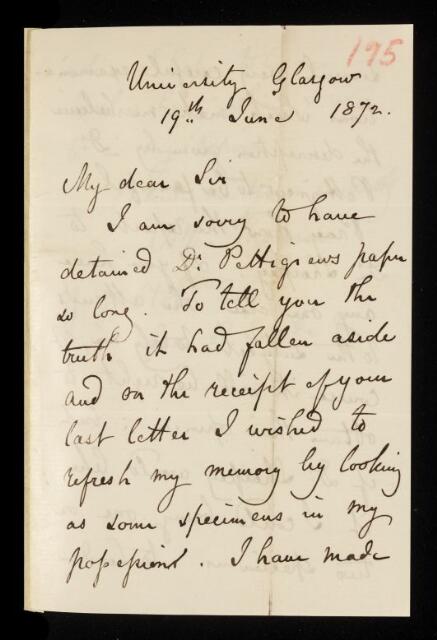 195
University Glasgow
19th June 1872.
My dear Sir
I am sorry to have
detained Dr. Pettigrews paper
so long. To tell you the
truth it had fallen aside
and on the receipt of your
last letter I wished to
refresh my memory by looking
as some specimens in my
possession. I have made